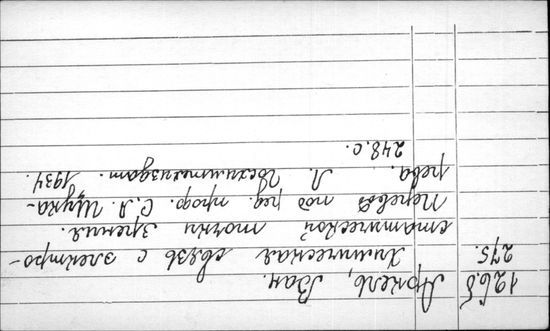 1268
275.
Аркель, Ван.
Химическая связь с электро-
статической точки зрения.
Перевод под ред. проф. С.А. Щука-
рева. Л. Госхимтехиздат. 1934.
248.с.